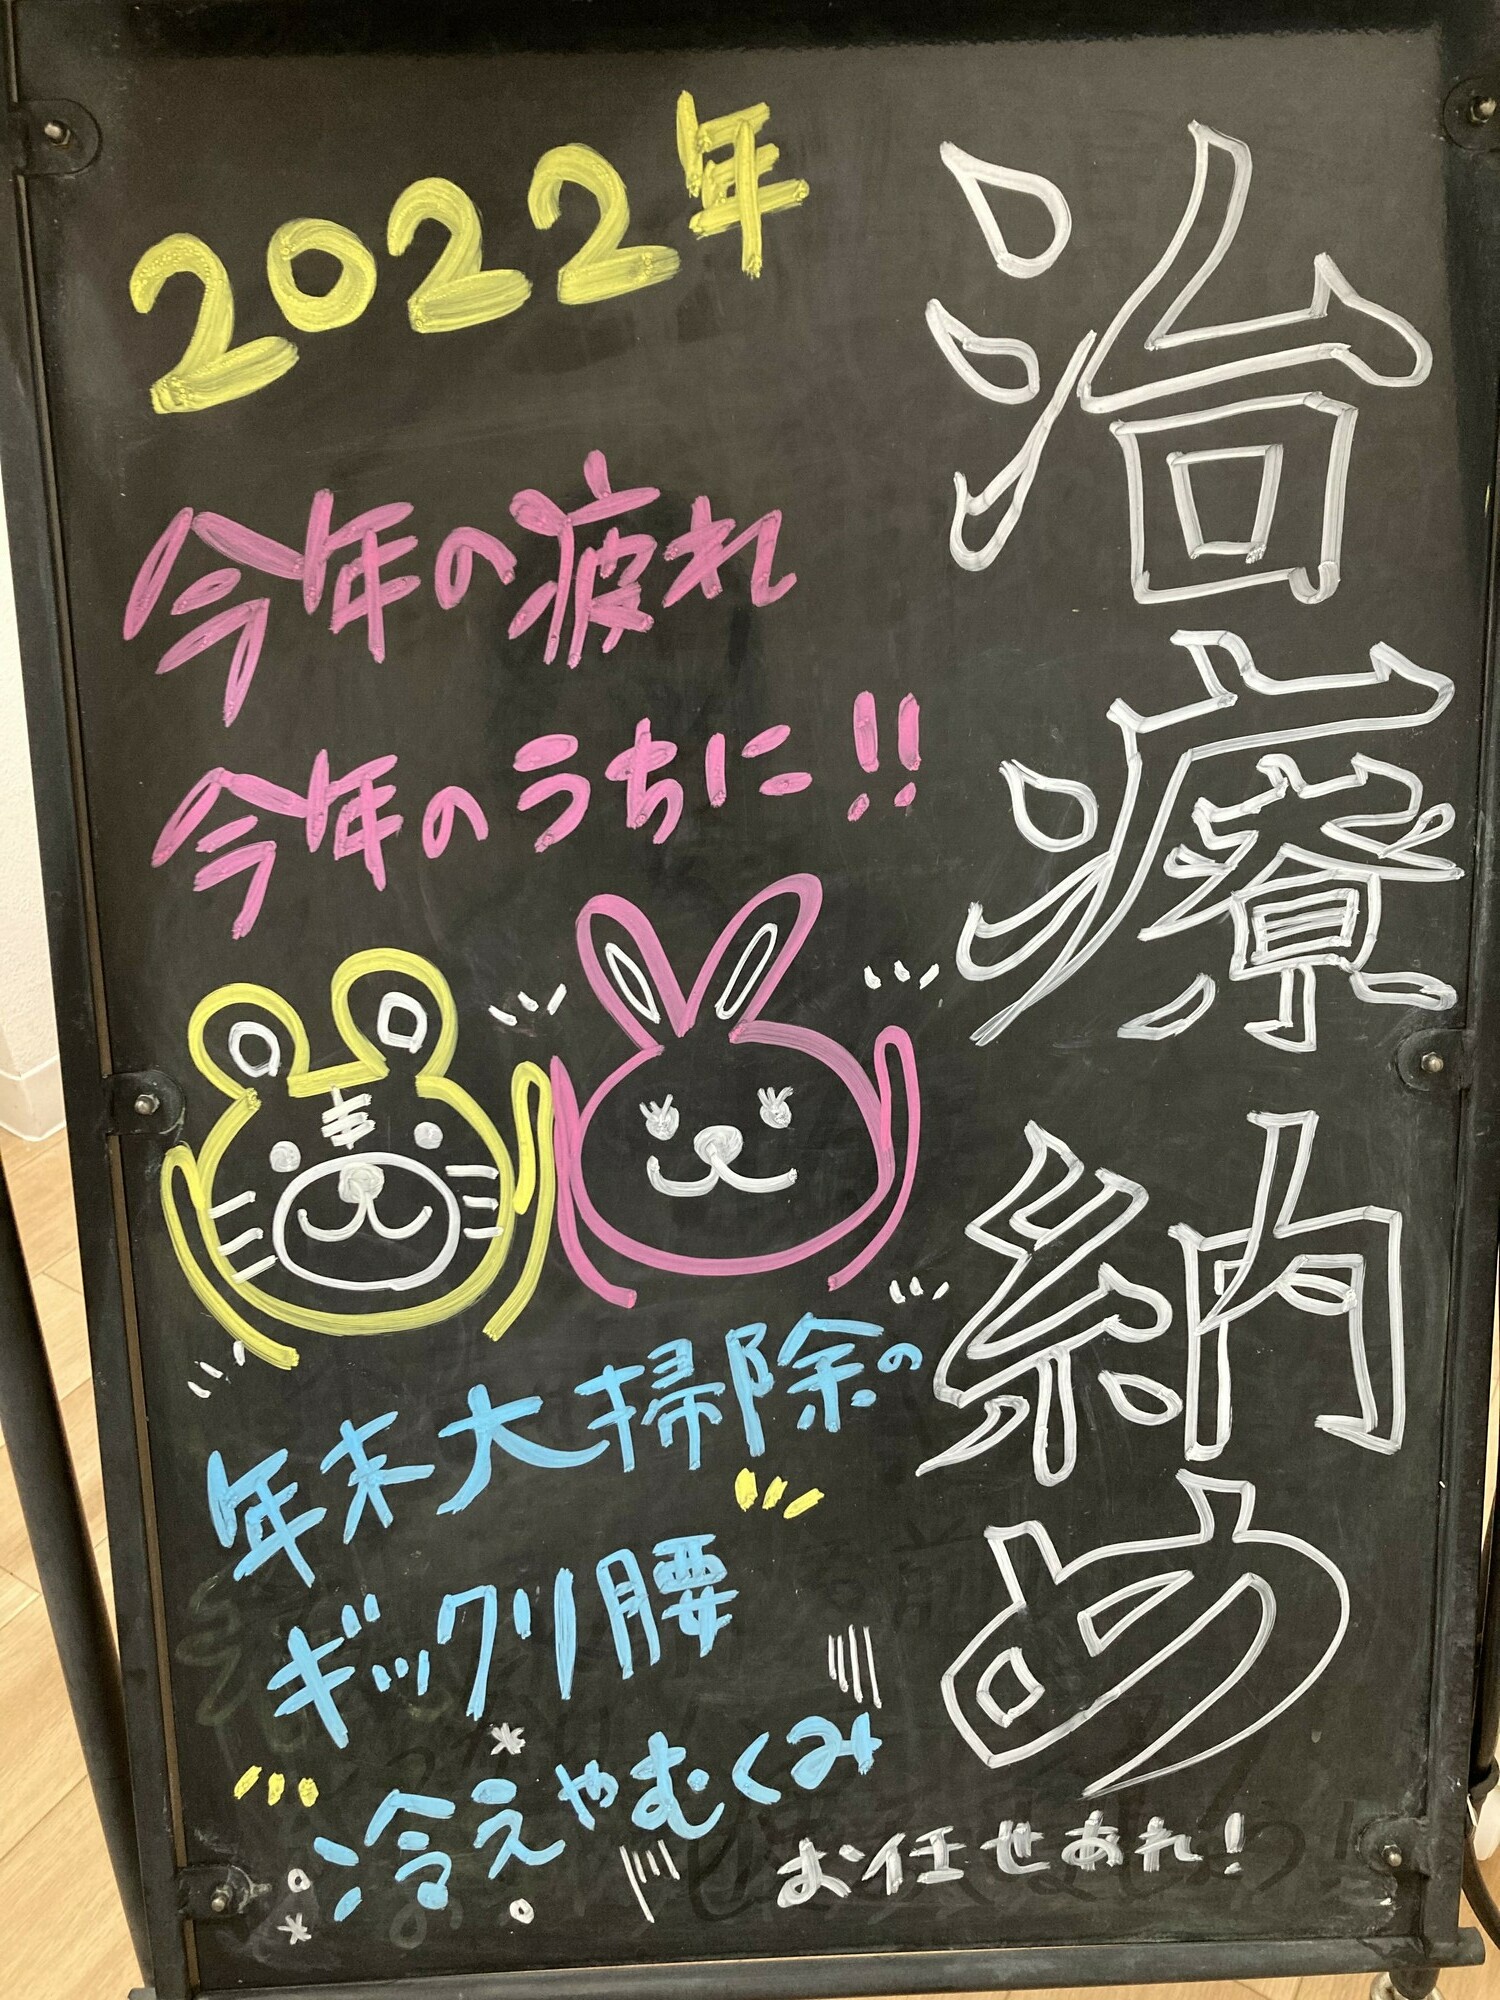 治療納め
2022年
今年の疲れ
今年のうちに!!
年末大掃除の
ギックリ腰
冷えやむくみ
お任せあれ!